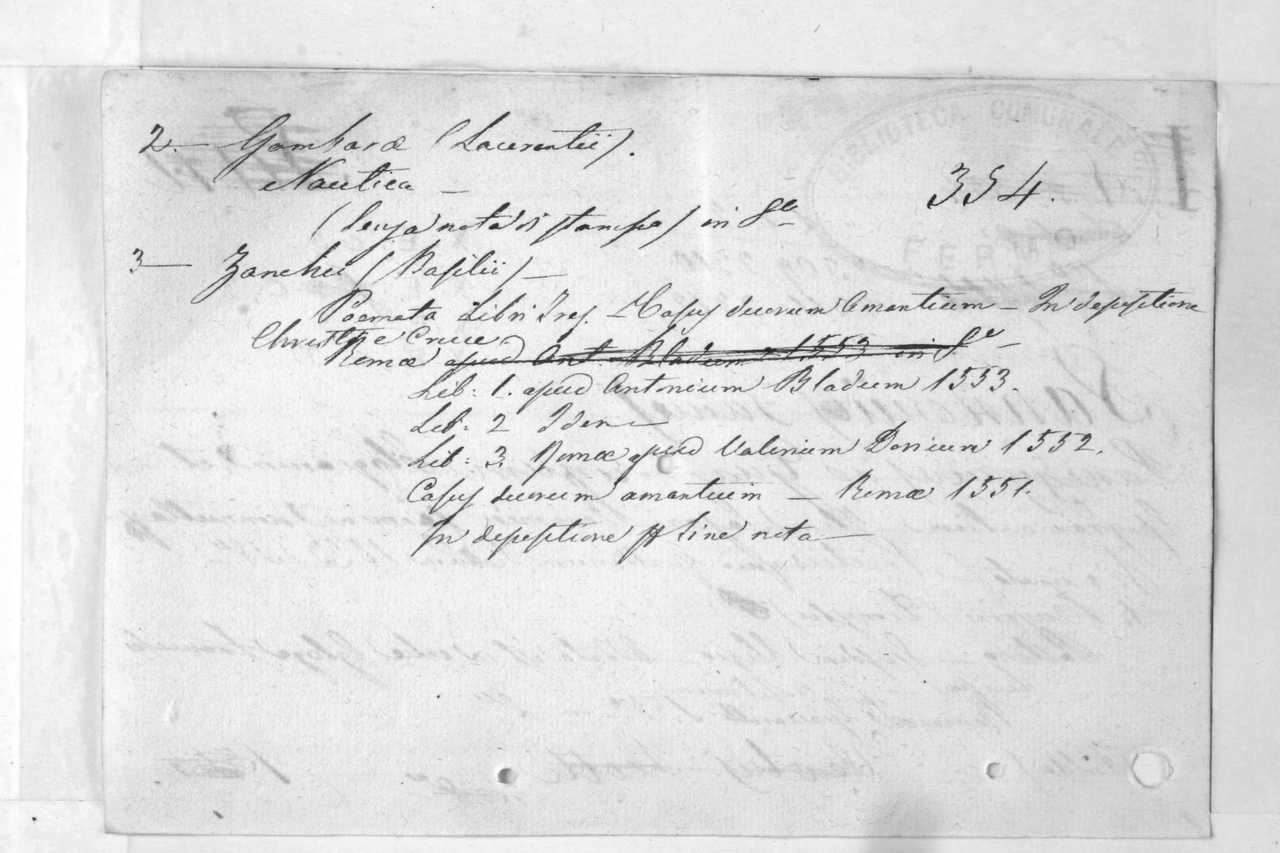 2. — Gambaræ (Laurentii).
354.
Nautica —
(Senza nota di stampa) in 8º
3 — Zanchii (Basilii) —
Poemata Libri Tres. — Casus duorum Amantium — In depositione
Christi e Cruce
Romæ apud Ant. Bladum 1553 in 8º —
Lib: 1. apud Antonium Bladum 1553.
Lib: 2 Idem
Lib: 3. Romæ apud Valerium Doricum 1552.
Casus duorum amantium — Romæ 1551.
In depositione sine nota —
BIBLIOTECA COMUNALE
FERMO